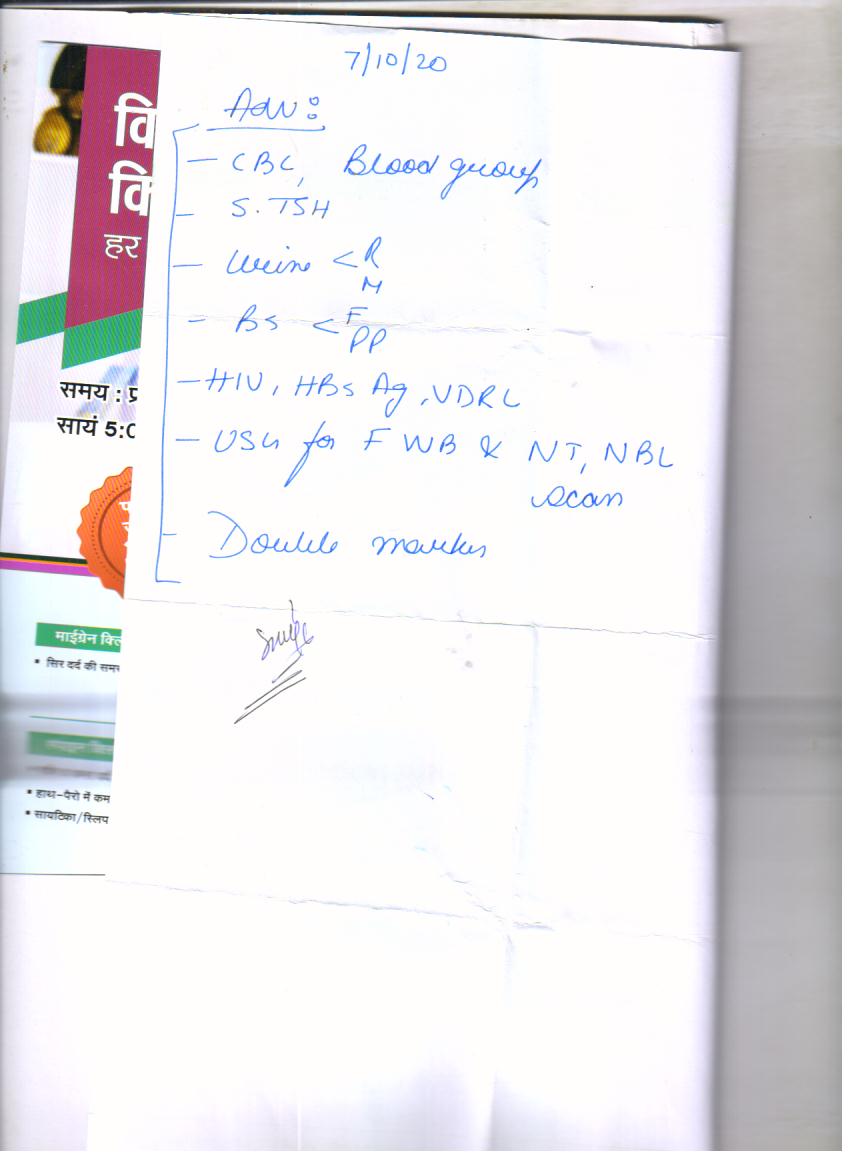 7/10/20
Adv:
वि
क्लि
हर
- CBC, Blood group
- S. TSH
- Urine < R
M
- BS < F
PP
समय : प्र
सायं 5:0
- HIV, HBsAg, VDRL
- USG for FWB & NT, NBL
scan
- Double marker
माईग्रेन क्लि
• सिर दर्द की समस
• हाथ-पैरो में कम
• सायटिका/स्लिप